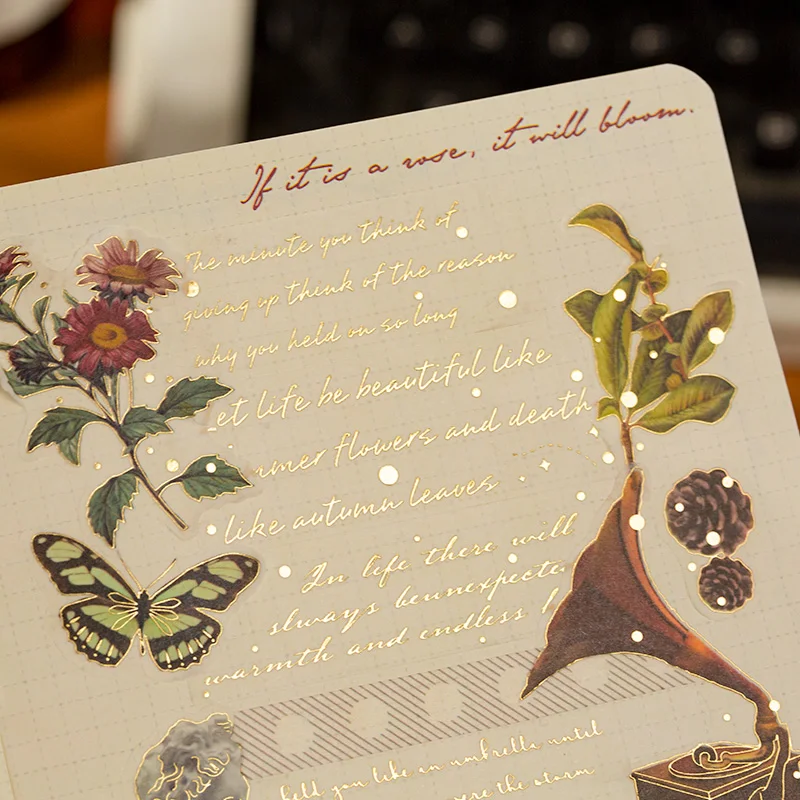 If it is a rose, it will bloom.
The minute you think of
giving up think of the reason
why you held on so long
et life be beautiful like
mmer flowers and death
like autumn leaves
In life there will
always be unexpecte
warmth and endless
held you like an umbrella until
were the storm